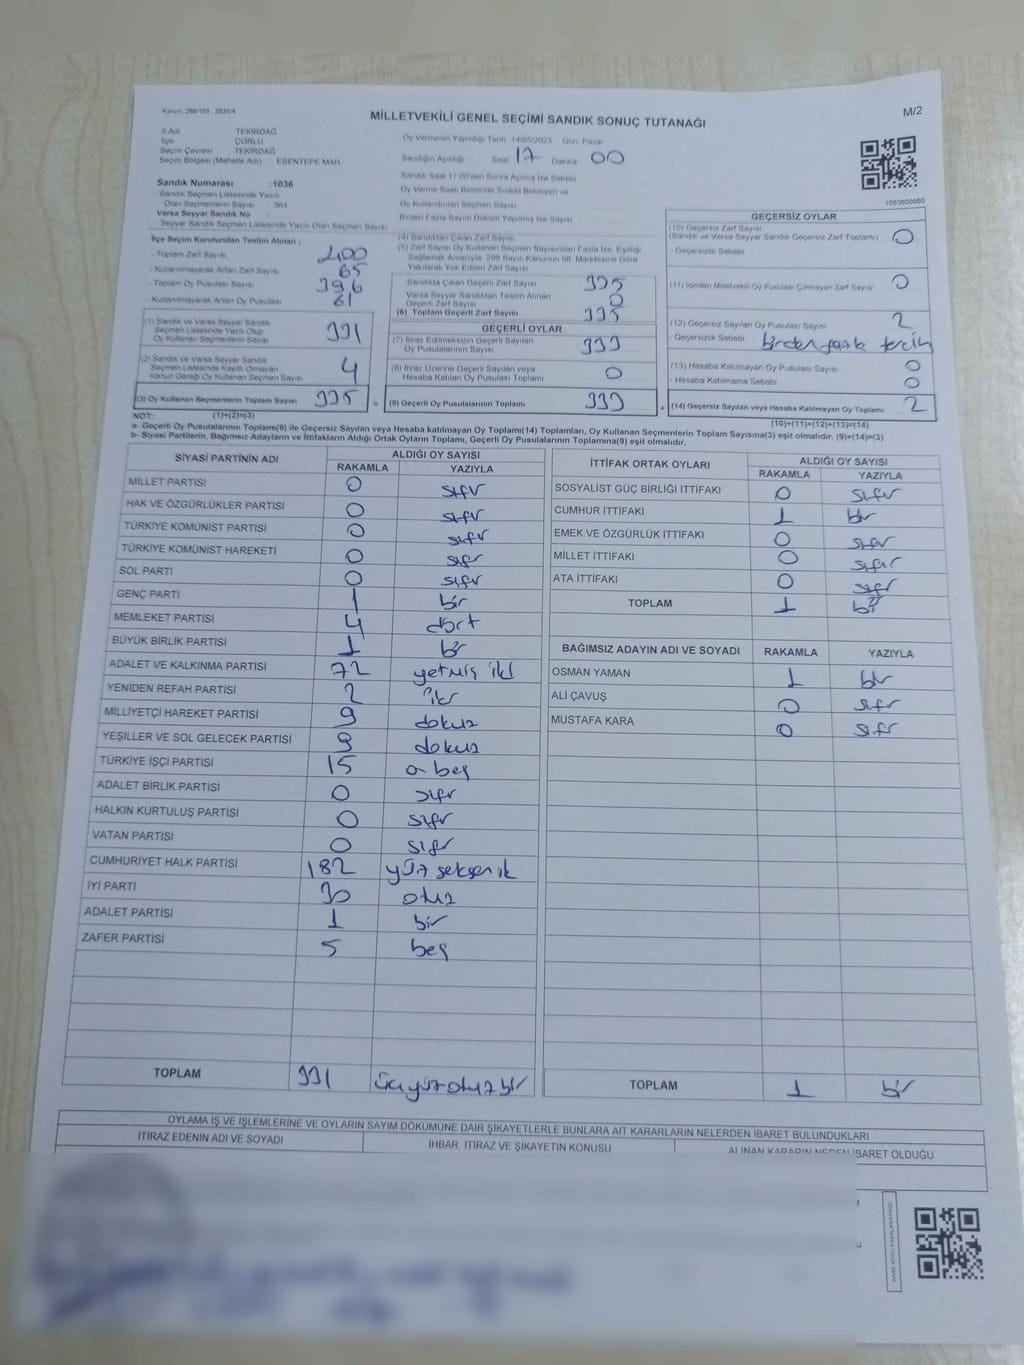 Kanun: 298/105 , 2839/4
M/2
MİLLETVEKİLİ GENEL SEÇİMİ SANDIK SONUÇ TUTANAĞI
İl Adı TEKİRDAĞ
İlçe ÇORLU
Seçim Çevresi TEKİRDAĞ
Seçim Bölgesi (Mahalle Adı) ESENTEPE MAH.
Sandık Numarası : 1036
Sandık Seçmen Listesinde Yazılı
Olan Seçmenlerin Sayısı
Varsa Seyyar Sandık No
- Seyyar Sandık Seçmen Listesinde Yazılı Olan Seçmen Sayısı
Oy Vermenin Yapıldığı Tarih 14/05/2023 Gün: Pazar
Sandığın Açıldığı Saat 17 Dakika 00
Sandık Saat 17:00'den Sonra Açılmış İse Sebebi
Oy Verme Saati Bitiminde Sırada Bekleyen ve
Oy Kullandırılan Seçmen Sayısı
Birden Fazla Sayım Döküm Yapılmış İse Sayısı
İlçe Seçim Kurulundan Teslim Alınan ;
- Toplam Zarf Sayısı 400
- Kullanılmayarak Artan Zarf Sayısı 65
- Toplam Oy Pusulası Sayısı 396
- Kullanılmayarak Artan Oy Pusulası 61
(1) Sandık ve Varsa Seyyar Sandık
Seçmen Listesinde Yazılı Olup
Oy Kullanan Seçmenlerin Sayısı 331
(2) Sandık ve Varsa Seyyar Sandık
Seçmen Listesinde Kayıtlı Olmayan
Kanun Gereği Oy Kullanan Seçmen Sayısı 4
(3) Oy Kullanan Seçmenlerin Toplam Sayısı 335 =
(4) Sandıktan Çıkan Zarf Sayısı
(5) Zarf Sayısı Oy Kullanan Seçmen Sayısından Fazla İse, Eşitliği
Sağlamak Amacıyla, 298 Sayılı Kanunun 98. Maddesine Göre
Yakılarak Yok Edilen Zarf Sayısı
Sandıkta Çıkan Geçerli Zarf Sayısı 335
Varsa Seyyar Sandıktan Teslim Alınan
Geçerli Zarf Sayısı 0
(6) Toplam Geçerli Zarf Sayısı 335
GEÇERLİ OYLAR
(7) İtiraz Edilmeksizin Geçerli Sayılan
Oy Pusulalarının Sayısı 333
(8) İtiraz Üzerine Geçerli Sayılan veya
Hesaba Katılan Oy Pusulası Toplamı 0
(9) Geçerli Oy Pusulalarının Toplamı 333 +
1083600060
GEÇERSİZ OYLAR
(10) Geçersiz Zarf Sayısı
(Sandık ve Varsa Seyyar Sandık Geçersiz Zarf Toplamı) 0
- Geçersizlik Sebebi
(11) İçinden Milletvekili Oy Pusulası Çıkmayan Zarf Sayısı 0
(12) Geçersiz Sayılan Oy Pusulası Sayısı 2
- Geçersizlik Sebebi birden fazla tercih
(13) Hesaba Katılmayan Oy Pusulası Sayısı 0
- Hesaba Katılmama Sebebi 0
(14) Geçersiz Sayılan veya Hesaba Katılmayan Oy Toplamı 2
NOT: (1)+(2)=(3) (10)+(11)+(12)+(13)=(14)
a- Geçerli Oy Pusulalarının Toplamı(9) ile Geçersiz Sayılan veya Hesaba katılmayan Oy Toplamı(14) Toplamları, Oy Kullanan Seçmenlerin Toplam Sayısına(3) eşit olmalıdır. (9)+(14)=(3)
b- Siyasi Partilerin, Bağımsız Adayların ve İttifakların Aldığı Ortak Oyların Toplamı, Geçerli Oy Pusulalarının Toplamına(9) eşit olmalıdır.
SİYASİ PARTİNİN ADI ALDIĞI OY SAYISI
RAKAMLA YAZIYLA
MİLLET PARTİSİ 0 sıfır
HAK VE ÖZGÜRLÜKLER PARTİSİ 0 sıfır
TÜRKİYE KOMÜNİST PARTİSİ 0 sıfır
TÜRKİYE KOMÜNİST HAREKETİ 0 sıfır
SOL PARTİ 0 sıfır
GENÇ PARTİ 1 bir
MEMLEKET PARTİSİ 4 dört
BÜYÜK BİRLİK PARTİSİ 1 bir
ADALET VE KALKINMA PARTİSİ 72 yetmiş iki
YENİDEN REFAH PARTİSİ 2 iki
MİLLİYETÇİ HAREKET PARTİSİ 9 dokuz
YEŞİLLER VE SOL GELECEK PARTİSİ 9 dokuz
TÜRKİYE İŞÇİ PARTİSİ 15 on beş
ADALET BİRLİK PARTİSİ 0 sıfır
HALKIN KURTULUŞ PARTİSİ 0 sıfır
VATAN PARTİSİ 0 sıfır
CUMHURİYET HALK PARTİSİ 182 yüz seksen iki
İYİ PARTİ 30 otuz
ADALET PARTİSİ 1 bir
ZAFER PARTİSİ 5 beş
TOPLAM 331 üç yüz otuz bir
İTTİFAK ORTAK OYLARI ALDIĞI OY SAYISI
RAKAMLA YAZIYLA
SOSYALİST GÜÇ BİRLİĞİ İTTİFAKI 0 sıfır
CUMHUR İTTİFAKI 1 bir
EMEK VE ÖZGÜRLÜK İTTİFAKI 0 sıfır
MİLLET İTTİFAKI 0 sıfır
ATA İTTİFAKI 0 sıfır
TOPLAM 1 bir
BAĞIMSIZ ADAYIN ADI VE SOYADI RAKAMLA YAZIYLA
OSMAN YAMAN 1 bir
ALİ ÇAVUŞ 0 sıfır
MUSTAFA KARA 0 sıfır
TOPLAM 1 bir
OYLAMA İŞ VE İŞLEMLERİNE VE OYLARIN SAYIM DÖKÜMÜNE DAİR ŞİKAYETLERLE BUNLARA AİT KARARLARIN NELERDEN İBARET BULUNDUKLARI
İTİRAZ EDENİN ADI VE SOYADI İHBAR, İTİRAZ VE ŞİKAYETİN KONUSU ALINAN KARARIN NEDEN İBARET OLDUĞU
KARE KODU KARALAMAYINIZ!